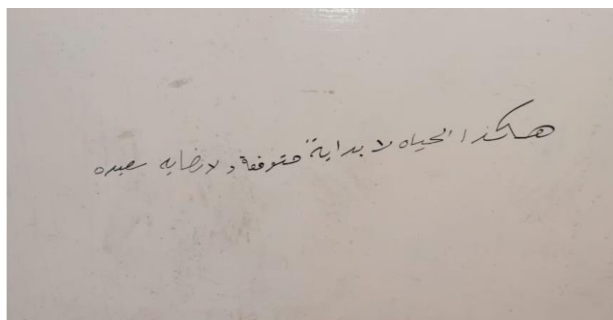 هكذا الحياه لا بداية متوفقة ولا نهايه سعيده